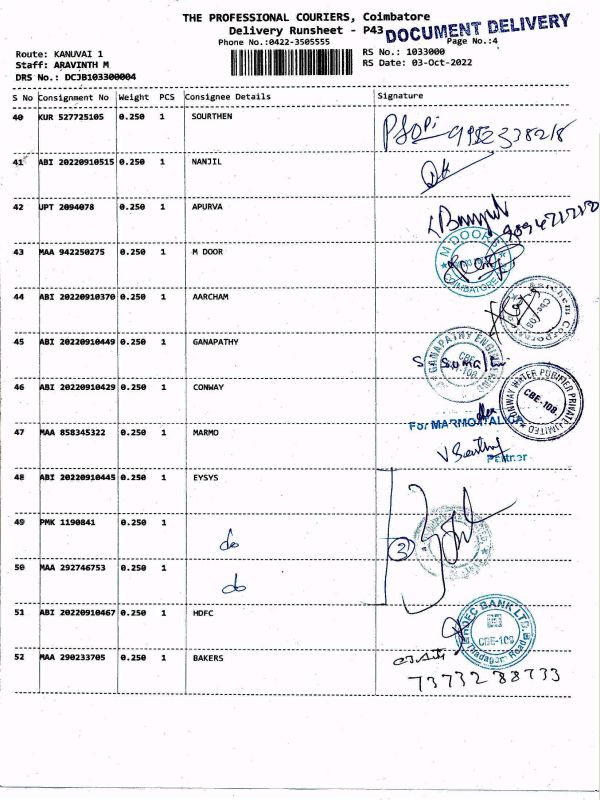 THE PROFESSIONAL COURIERS, Coimbatore
Delivery Runsheet - P43
DOCUMENT DELIVERY
Phone No.:0422-3505555
Page No.:4
Route: KANUVAI 1
RS No.: 1033000
Staff: ARAVINTH M
RS Date: 03-Oct-2022
DRS No.: DCJB103300004
S No Consignment No Weight PCS Consignee Details Signature
40 KUR 527725105 0.250 1 SOURTHEN
41 ABI 20220910515 0.250 1 NANJIL
42 UPT 2094078 0.250 1 APURVA
43 MAA 942250275 0.250 1 M DOOR
M DOORS
COIMBATORE
44 ABI 20220910370 0.250 1 AARCHAM
45 ABI 20220910449 0.250 1 GANAPATHY
GANAPATHY ENGINE
CBE-108
46 ABI 20220910429 0.250 1 CONWAY
CONWAY WATER PURIFIER PRIVATE LIMITED
CBE-108
47 MAA 858345322 0.250 1 MARMO
Partner
48 ABI 20220910445 0.250 1 EYSYS
49 PMK 1190841 0.250 1 do
3
50 MAA 292746753 0.250 1 do
51 ABI 20220910467 0.250 1 HDFC
HDFC BANK LTD.
CBE-108
Thadagam Road
52 MAA 290233705 0.250 1 BAKERS
73732 88733